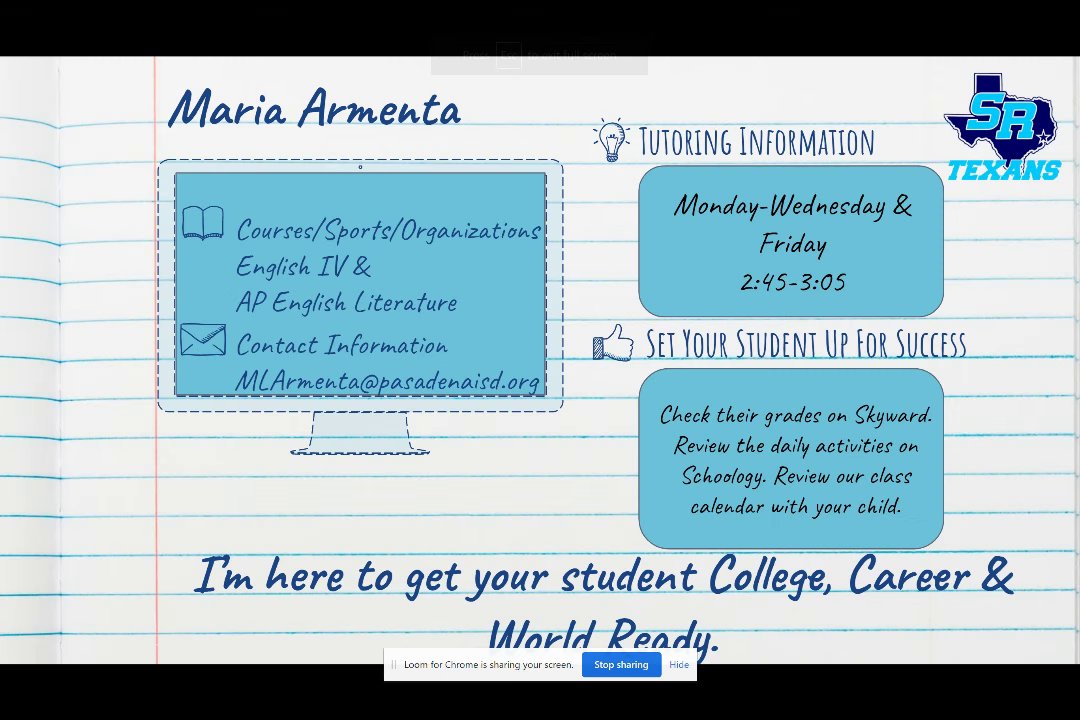 Press Esc to exit full screen
Maria Armenta
SR
TEXANS
Courses/Sports/Organizations
English IV &
AP English Literature
Contact Information
MLArmenta@pasadenaisd.org
TUTORING INFORMATION
Monday-Wednesday &
Friday
2:45-3:05
SET YOUR STUDENT UP FOR SUCCESS
Check their grades on Skyward.
Review the daily activities on
Schoology. Review our class
calendar with your child.
I'm here to get your student College, Career &
World Ready.
Loom for Chrome is sharing your screen. Stop sharing Hide